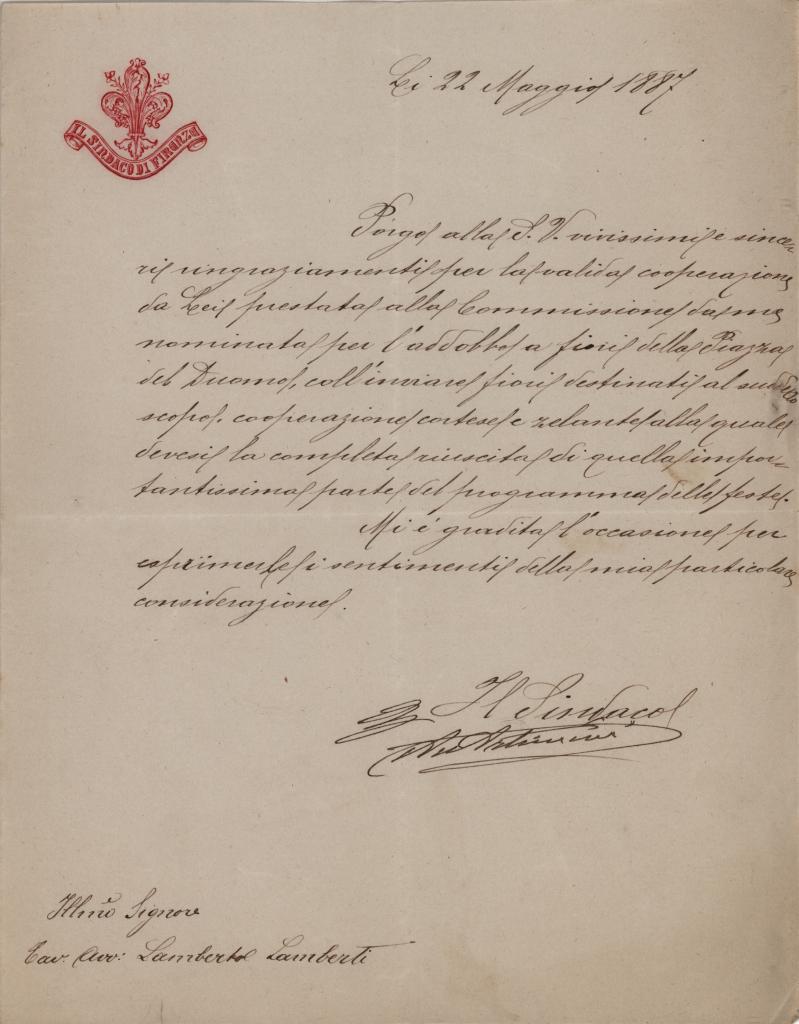 IL SINDACO DI FIRENZE
Li 22 Maggio 1887
Porgo alla S. V. vivissimi e since-
ri ringraziamenti per la valida cooperazione
da Lei prestata alla Commissione da me
nominata per l'addobbo a fiori della Piazza
del Duomo, coll'inviare fiori destinati al suddetto
scopo, cooperazione cortese e zelante alla quale
devesi la completa riuscita di quella impor-
tantissima parte del programma delle feste.
Mi è gradita l'occasione per
esprimerle i sentimenti della mia particolare
considerazione.
Il Sindaco
Illmo Signore
Cav. Avv: Lamberto Lamberti